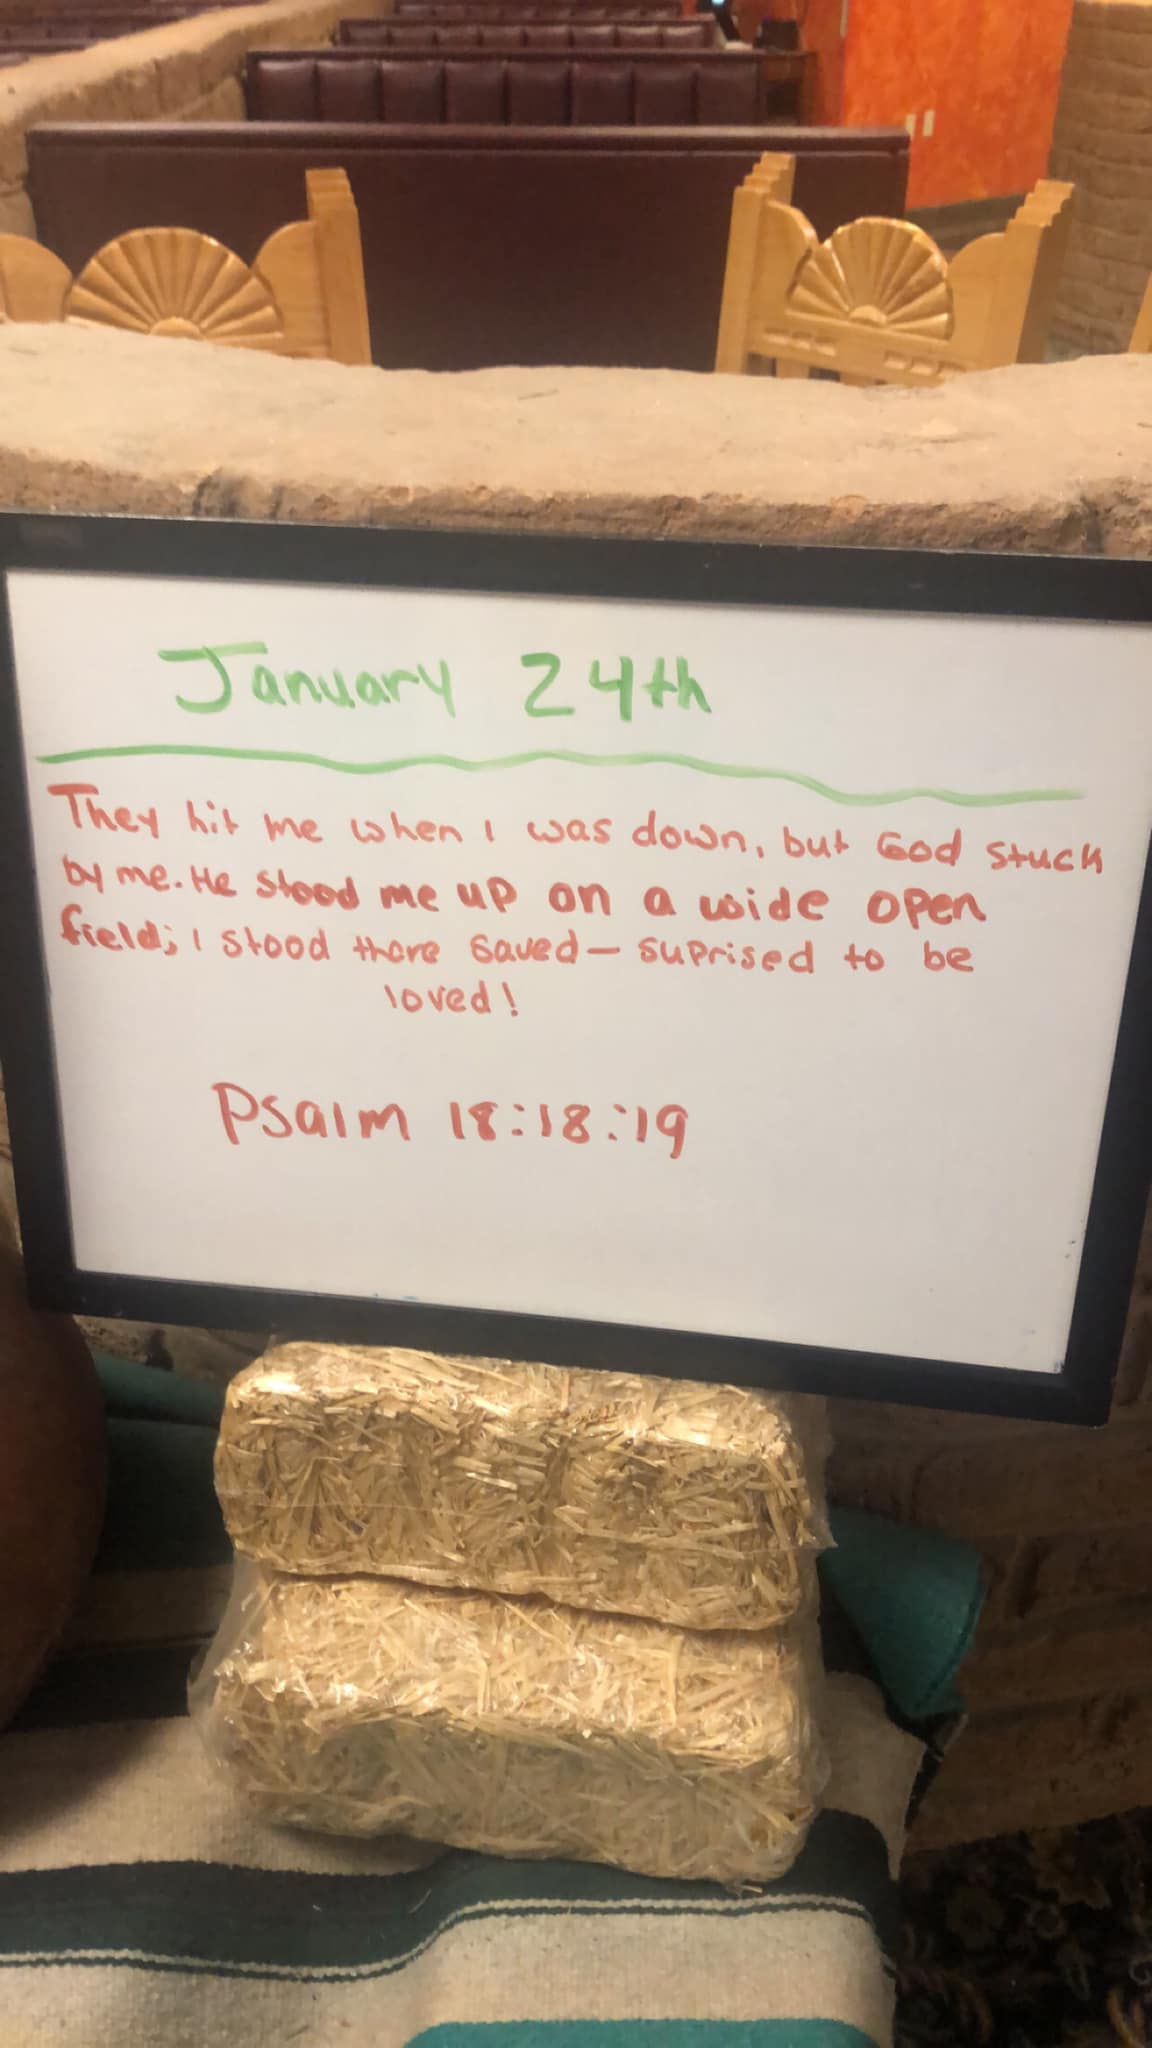 January 24th
They hit me when I was down, but God stuck
by me. He stood me up on a wide open
field; I stood there saved— suprised to be
loved!
Psalm 18:18:19